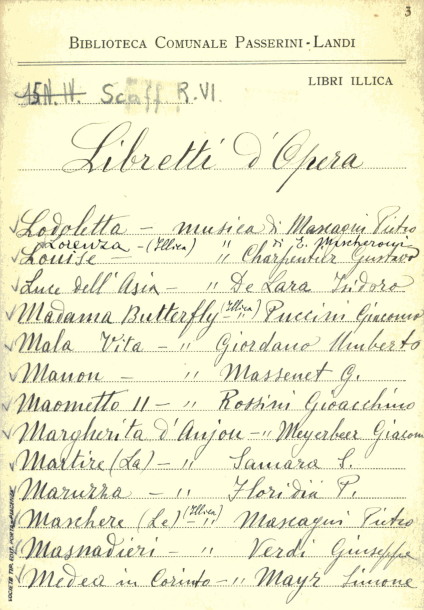 3
BIBLIOTECA COMUNALE PASSERINI-LANDI
LIBRI ILLICA
15N. IV. Scaff R.VI.
Libretti d'Opera
Lodoletta - musica di Mascagni Pietro
Lorenza - (Illica) " di E. Mascheroni
Louise - " Charpentier Gustavo
Luce dell'Asia - " De Lara Isidoro
Madama Butterfly (Illica) - " Puccini Giacomo
Mala Vita - " Giordano Umberto
Manon - " Massenet G.
Maometto II - " Rossini Gioacchino
Margherita d'Anjou - " Meyerbeer Giacom
Martire (La) - " Samara S.
Maruzza - " Floridia P.
Maschere (Le) (Illica) - " Mascagni Pietro
Masnadieri - " Verdi Giuseppe
Medea in Corinto - " Mayr Simone